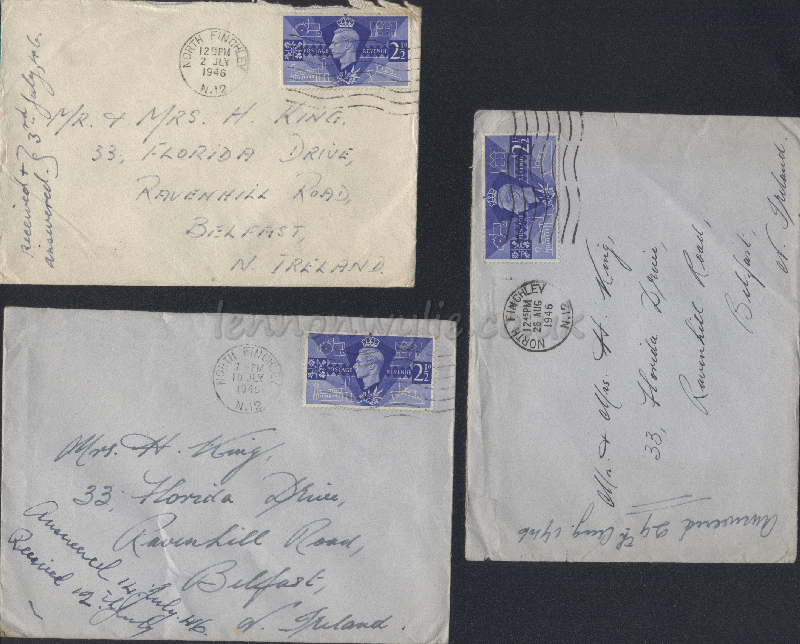 NORTH FINCHLEY
12 45 PM
2 JLY
1946
N.12
POSTAGE REVENUE
2½D
Received & answered. } 3rd July 46.
MR. & MRS. H. KING.
33, FLORIDA DRIVE,
RAVENHILL ROAD,
BELFAST,
N. IRELAND.
lennonwylie.co.uk
NORTH FINCHLEY
PM
10 JLY
1946
N.12
POSTAGE REVENUE
2½D
Mrs. H. King,
33, Florida Drive,
Ravenhill Road,
Belfast,
N. Ireland.
Answered 14 July. 46.
Received 12th July
POSTAGE REVENUE
2½D
NORTH FINCHLEY
12 45 PM
26 AUG
1946
N.12
Mr. & Mrs. H. King,
33, Florida Drive,
Ravenhill Road,
Belfast.
N. Ireland.
Answered 29th Aug. 1946